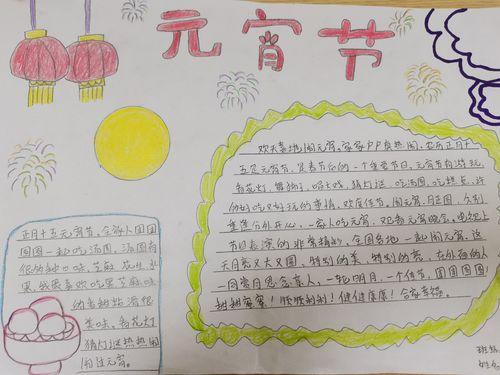 元宵节
欢天喜地闹元宵。家家户户真热闹，农历正月十
五是元宵节，是春节后的一个重要节日，元宵节有游玩，
看花灯，舞狮子，唱大戏，猜灯谜，吃汤圆，吃糕点，许
多好吃又好玩的事情，欢度佳节，闹元宵，月正圆，今
逢外开心，一家人吃元宵，观看元宵晚会，电视上
节目表演的非常精彩，全国各地一起闹元宵，这
天月亮又大又圆，特别的美，特别的亮，在外面的人
一同赏月思念亲人，一轮明月，一个佳节，团团圆圆！
甜甜蜜蜜！顺顺利利！健健康康！合家幸福。
正月十五元宵节，全家人团团
圆圆一起吃汤圆，汤圆有
很多种口味，芝麻，花生，水
果，我最喜欢吃黑芝麻味
的香甜黏滑很
美味，看花灯
猜灯谜热热闹
闹过元宵。
班级
姓名